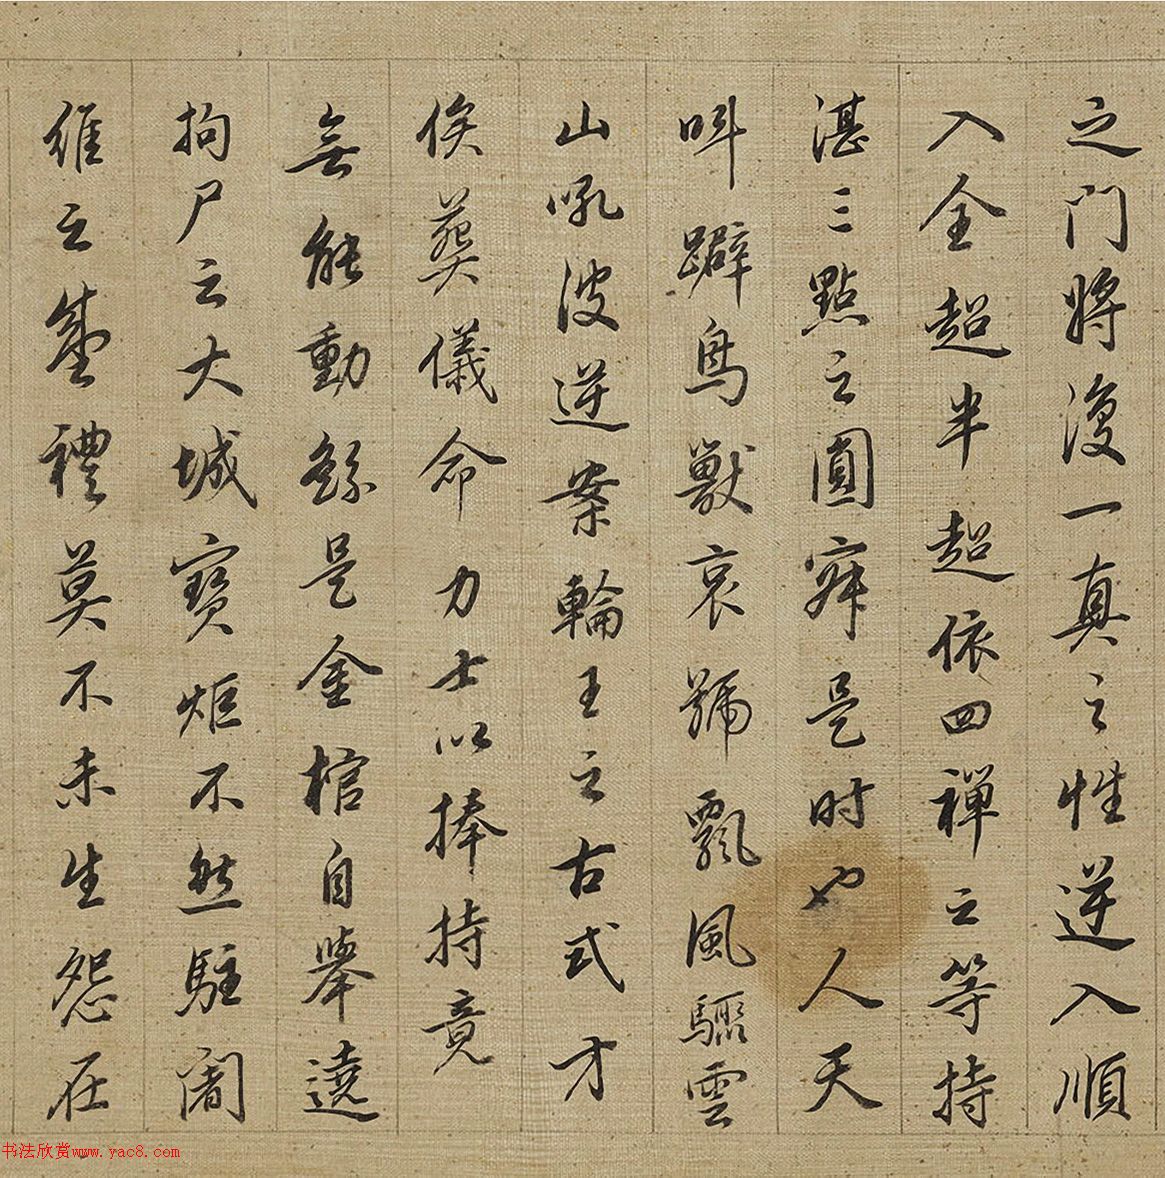 之門將復一真之性逆入順
入全超半超依四禪之等持
湛三點之圓寂是時也人天
叫躃鳥獸哀號飄風驟雲
山吼波逆案輪王之古式才
俟葬儀命力士以捧持竟
無能動繇是金棺自舉遶
拘尸之大城寶炬不然駐闍
維之盛禮莫不未生怨在
书法欣赏www.yac8.com